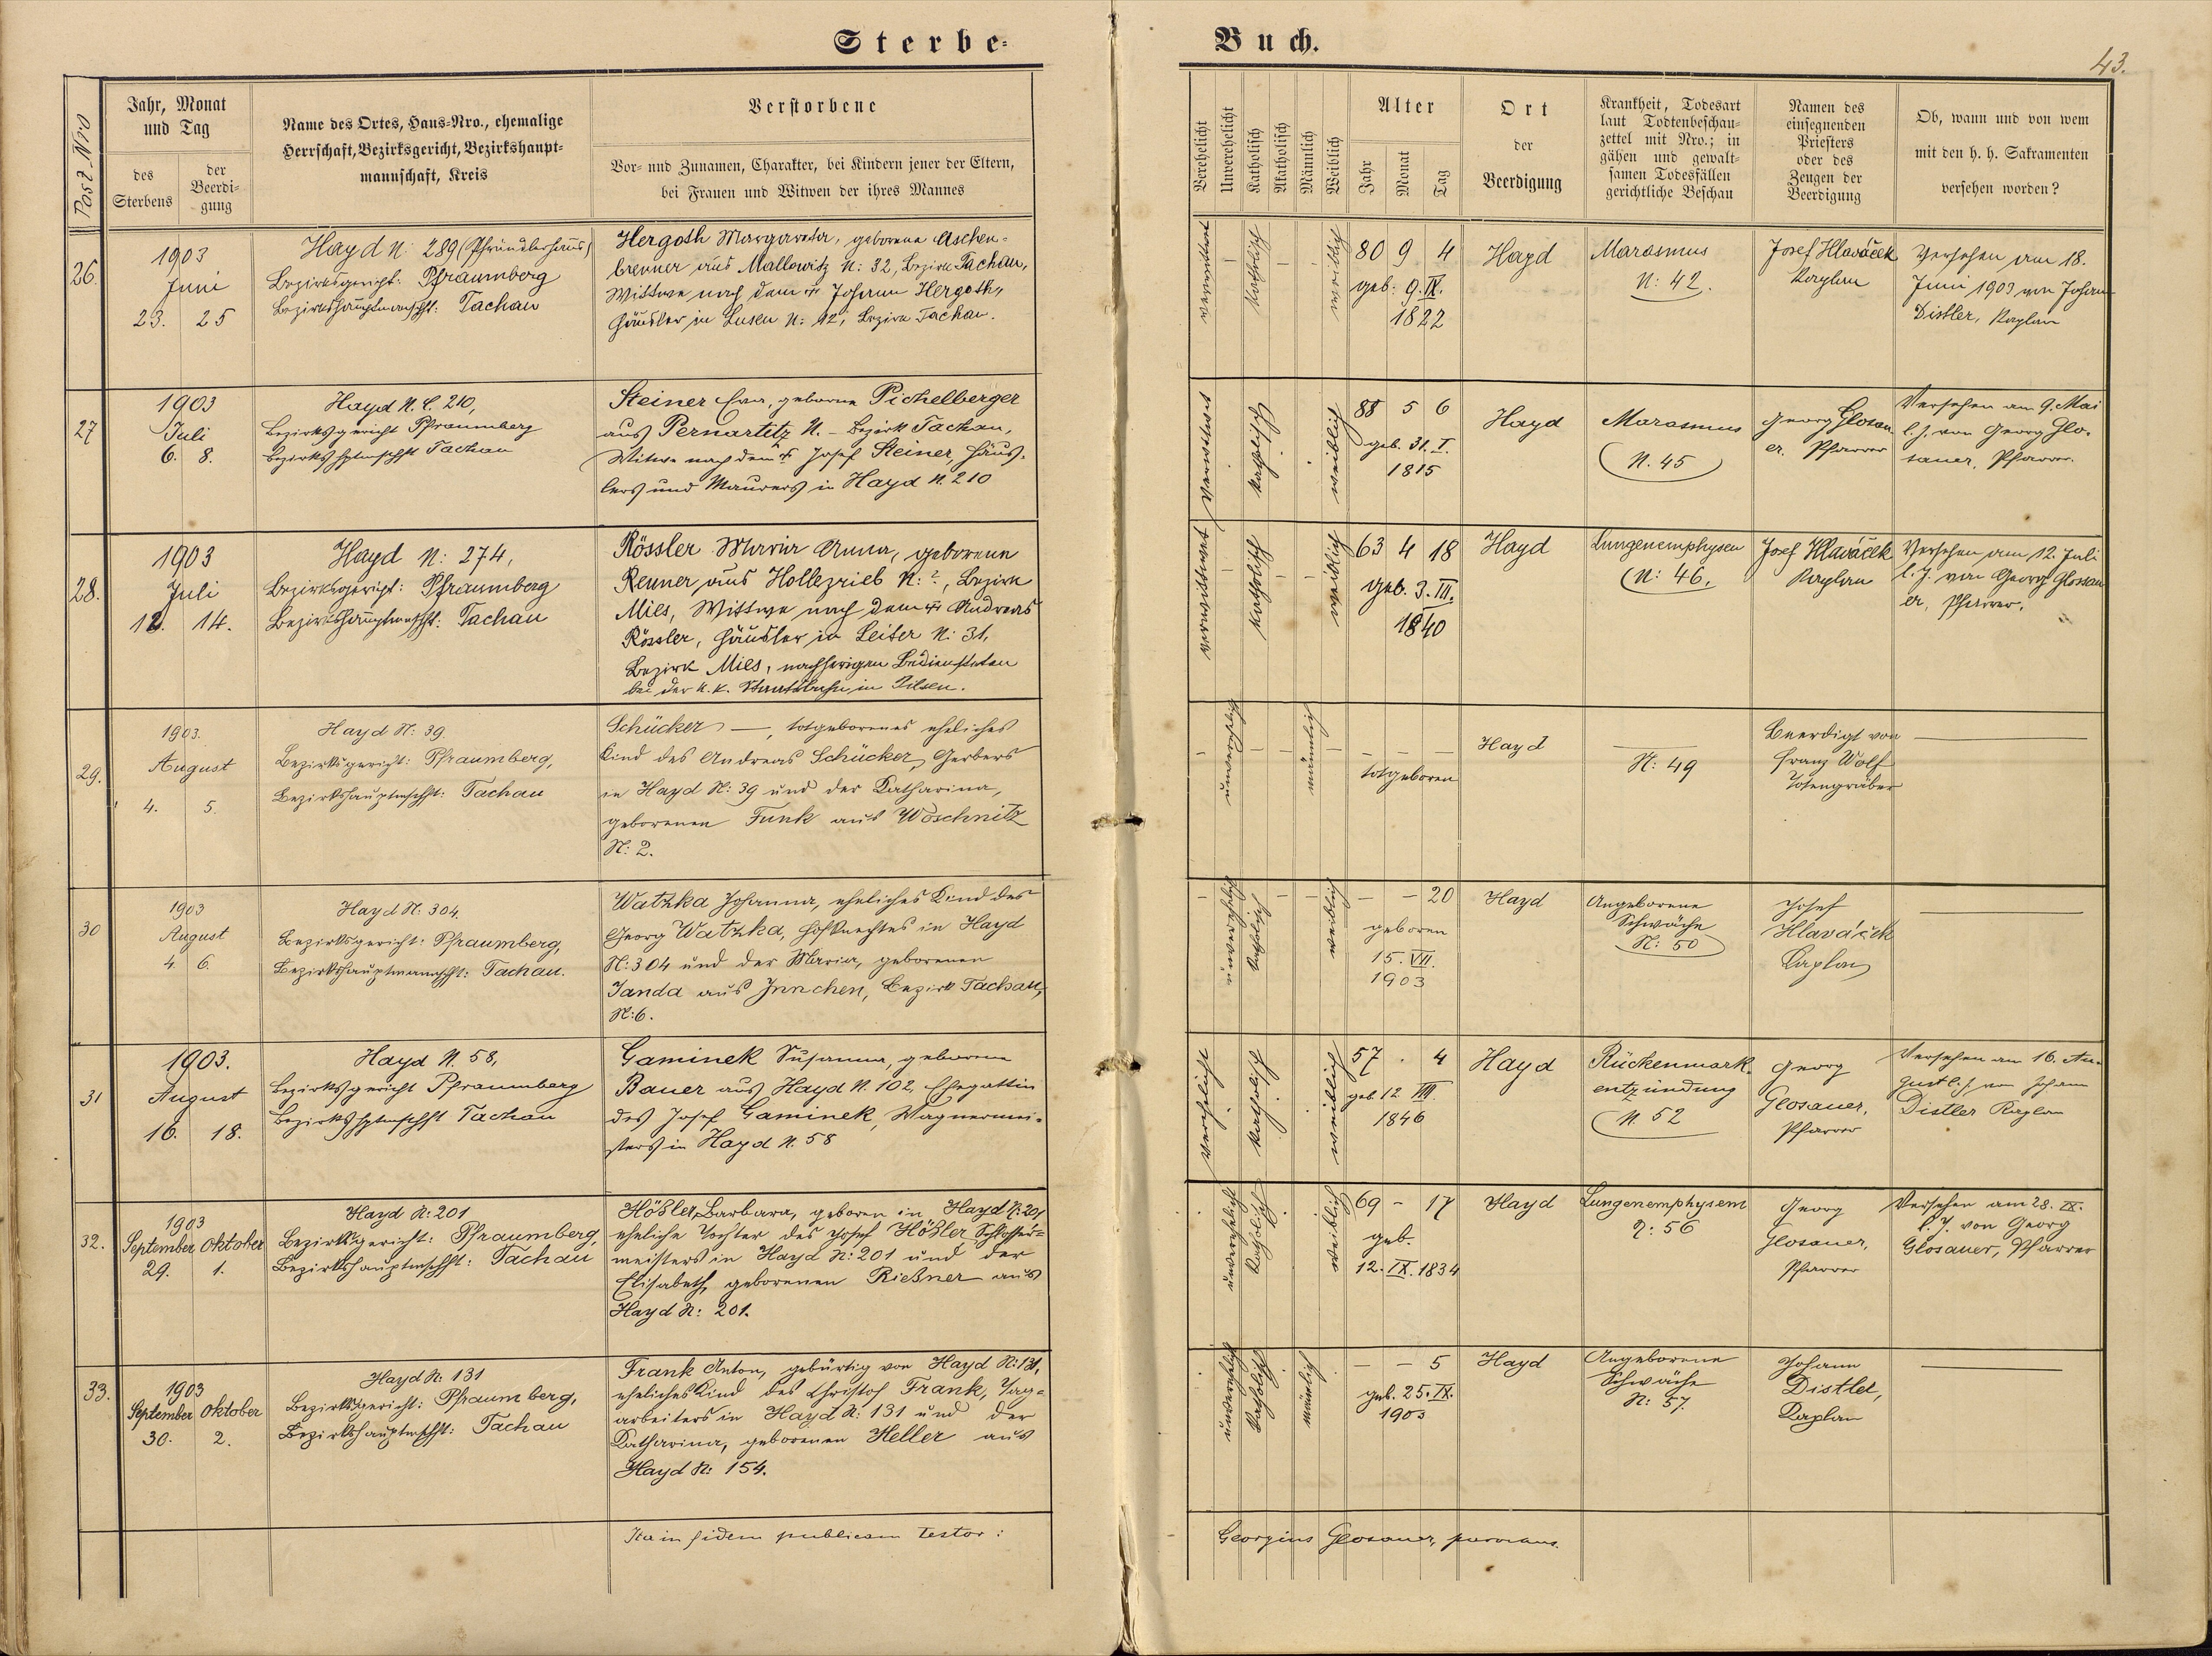 Sterbe-
Buch.
43.
Post-Nro
Jahr, Monat
und Tag
des
Sterbens
der
Beerdi-
gung
Name des Ortes, Haus-Nro., ehemalige
Herrschaft, Bezirksgericht, Bezirkshaupt-
mannschaft, Kreis
Verstorbene
Vor- und Zunamen, Charakter, bei Kindern jener der Eltern,
bei Frauen und Witwen der ihres Mannes
Verehelicht
Unverehelicht
Katholisch
Akatholisch
Männlich
Weiblich
Alter
Jahr
Monat
Tag
Ort
der
Beerdigung
Krankheit, Todesart
laut Todtenbeschau-
zettel mit Nro.; in
gähen und gewalt-
samen Todesfällen
gerichtliche Beschau
Namen des
einsegnenden
Priesters
oder des
Zeugen der
Beerdigung
Ob, wann und von wem
mit den h. h. Sakramenten
versehen worden?
26.
1903
Juni
23. 25
Hayd N: 289 (Pfründlerhaus)
Bezirksgericht: Pfraumberg
Bezirkshauptmannschft: Tachau
Hergoth Margareta, geborene Aschen-
brenner aus Mallowitz N: 32, Bezirk Tachau,
Wittwe nach dem † Johann Hergoth,
Häusler in Lusen N: 12, Bezirk Tachau.
verwittwet
katholisch
weiblich
80 9 4
geb: 9. IX.
1822
Hayd
Marasmus
N: 42.
Josef Hlaváček
Kaplan
Versehen am 18.
Juni 1903 von Johann
Distler, Kaplan
27
1903
Juli
6. 8.
Hayd N. C. 210,
Bezirksgericht Pfraumberg
Bezirkshptmschft Tachau
Steiner Eva, geborne Pichelberger
aus Pernartitz N. – Bezirk Tachau,
Witwe nach dem † Josef Steiner, Häus-
lers und Maurers in Hayd N. 210
Verwitwet
katholisch
weiblich
88 5 6
geb. 31. I.
1815
Hayd
Marasmus
N. 45
Georg Glosau
er, Pfarrer
Versehen am 9. Mai
l. J. von Georg Glo-
sauer, Pfarrer.
28.
1903
Juli
12. 14.
Hayd N: 274,
Bezirksgericht: Pfraumberg
Bezirkshauptmschft: Tachau
Rössler Maria Anna, geborene
Renner aus Hollezrieb N: ?, Bezirk
Mies, Wittwe nach dem † Andreas
Rössler, Häusler in Leiter N: 31,
Bezirk Mies, nachherigen Bediensteten
bei der k. k. Staatsbahn in Pilsen.
verwittwet
katholisch
weiblich
63 4 18
geb. 3. III.
1840
Hayd
Lungenemphysem
N: 46.
Josef Hlaváček
Kaplan
Versehen am 12. Juli
l. J. von Georg Glosau
er, Pfarrer.
29.
1903.
August
4. 5.
Hayd N: 39.
Bezirksgericht: Pfraumberg,
Bezirkshauptmschft: Tachau
Schücker —, totgeborenes eheliches
Kind des Andreas Schücker, Gerbers
in Hayd N: 39 und der Katharina,
geborenen Funk aus Woschnitz
N: 2.
unverehelich
männlich
totgeboren
Hayd
N: 49
Beerdigt von
Franz Wolf
Totengräber
30
1903
August
4. 6.
Hayd N: 304.
Bezirksgericht: Pfraumberg,
Bezirkshauptmannschft: Tachau.
Watzka Johanna, eheliches Kind des
Georg Watzka, Hofknechtes in Hayd
N: 304 und der Maria, geborenen
Janda aus Innchen, Bezirk Tachau,
N: 6.
unverehelich
katholisch
weiblich
– – 20
geboren
15. VII.
1903
Hayd
Angeborene
Schwäche
N: 50
Josef
Hlaváček
Kaplan
31
1903.
August
16. 18.
Hayd N. 58,
Bezirksgericht Pfraumberg
Bezirkshptmschft Tachau
Gaminek Susanna, geborene
Bauer aus Hayd N. 102, Ehegattin
des Josef Gaminek, Wagnermei-
sters in Hayd N. 58
verehelicht
katholisch
weiblich
57 . 4
geb. 12. VIII.
1846
Hayd
Rückenmark-
entzündung
N. 52
Georg
Glosauer,
Pfarrer
Versehen am 16. Au-
gust l. J. von Johann
Distler Kaplan
32.
1903
September Oktober
29. 1.
Hayd N: 201
Bezirksgericht: Pfraumberg,
Bezirkshauptmschft: Tachau
Hößler Barbara, geboren in Hayd N: 201
eheliche Tochter des Josef Hößler Schlosser-
meisters in Hayd N: 201 und der
Elisabeth, geborenen Rießner aus
Hayd N: 201.
unverehelicht
katholisch
weiblich
69 – 17
geb.
12. IX. 1834
Hayd
Lungenemphysem
N: 56
Georg
Glosauer,
Pfarrer
Versehen am 28. IX.
l. J. von Georg
Glosauer, Pfarrer
33.
1903
September Oktober
30. 2.
Hayd N: 131
Bezirksgericht: Pfraumberg,
Bezirkshauptmschft: Tachau
Frank Anton, gebürtig von Hayd N: 131,
eheliches Kind des Christof Frank, Tag-
arbeiters in Hayd N: 131 und der
Katharina, geborenen Heller aus
Hayd N: 154.
unverehelich
katholisch
männlich
– – 5
geb. 25. IX.
1903
Hayd
Angeborene
Schwäche
N: 57.
Johann
Distler,
Kaplan
Ita in fidem publicam testor:
Georgius Glosauer, parochus.